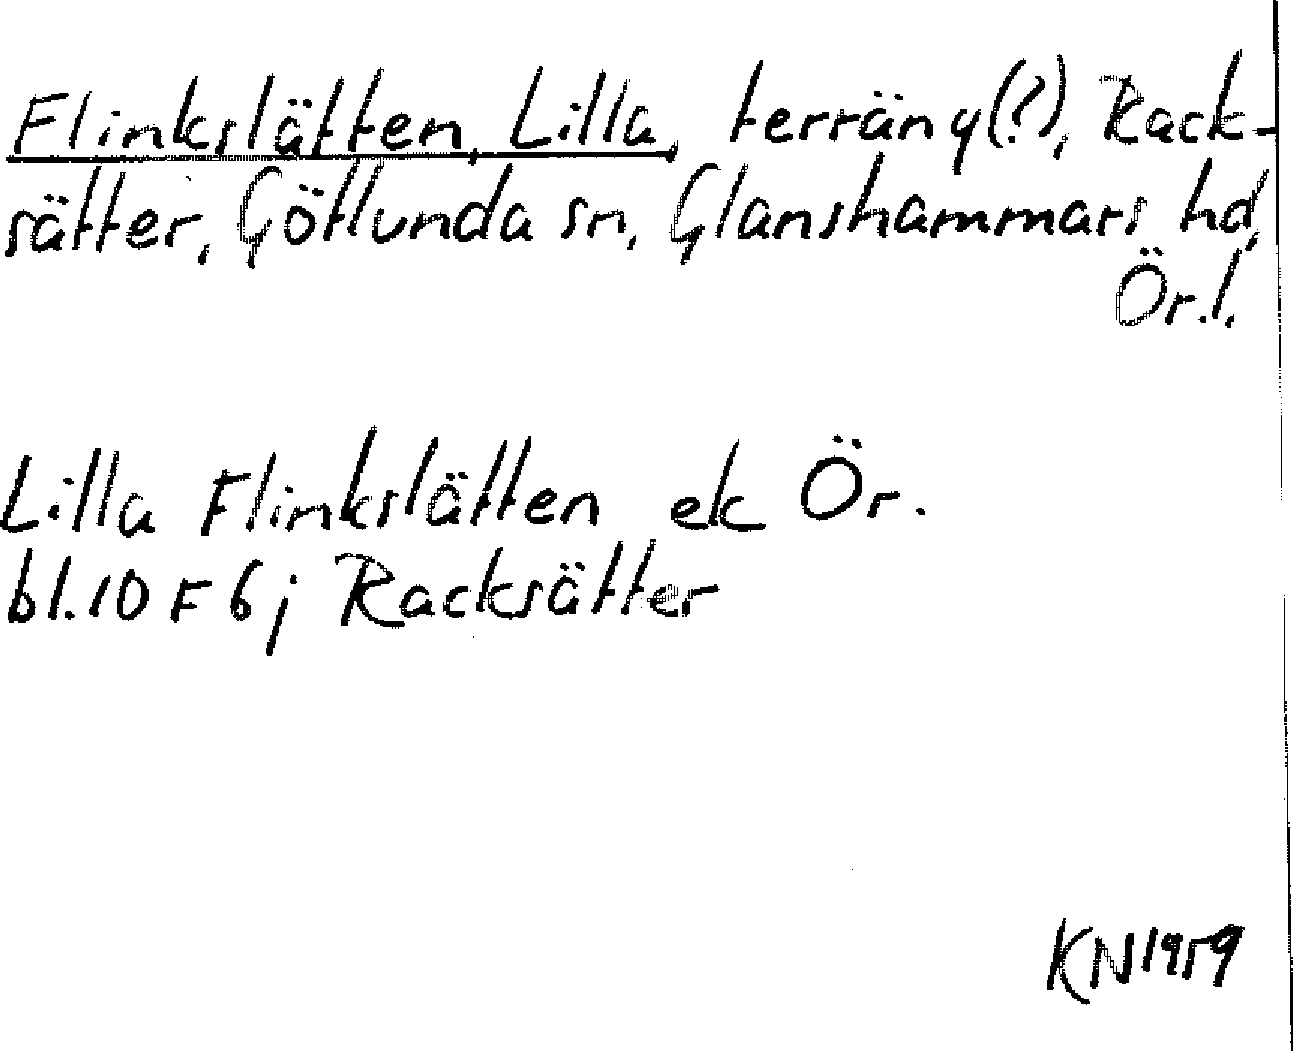 Flinkslätten, Lilla, terräng(?), Rack-
sätter, Götlunda sn, Glanshammars hd,
Ör.l.
Lilla Flinkslätten ek Ör.
bl. 10 F 6 j Racksätter
KN 1959